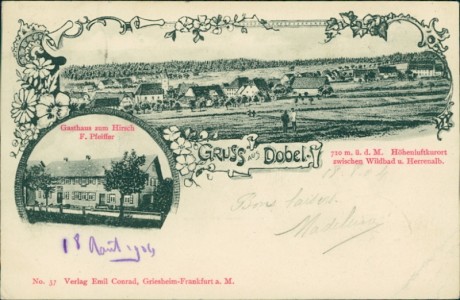 Gasthaus zum Hirsch
F. Pfeiffer
Gruss aus Dobel.
710 m. ü. d. M. Höhenluftkurort
zwischen Wildbad u. Herrenalb.
Madeleine
No. 37 Verlag Emil Conrad, Griesheim-Frankfurt a. M.